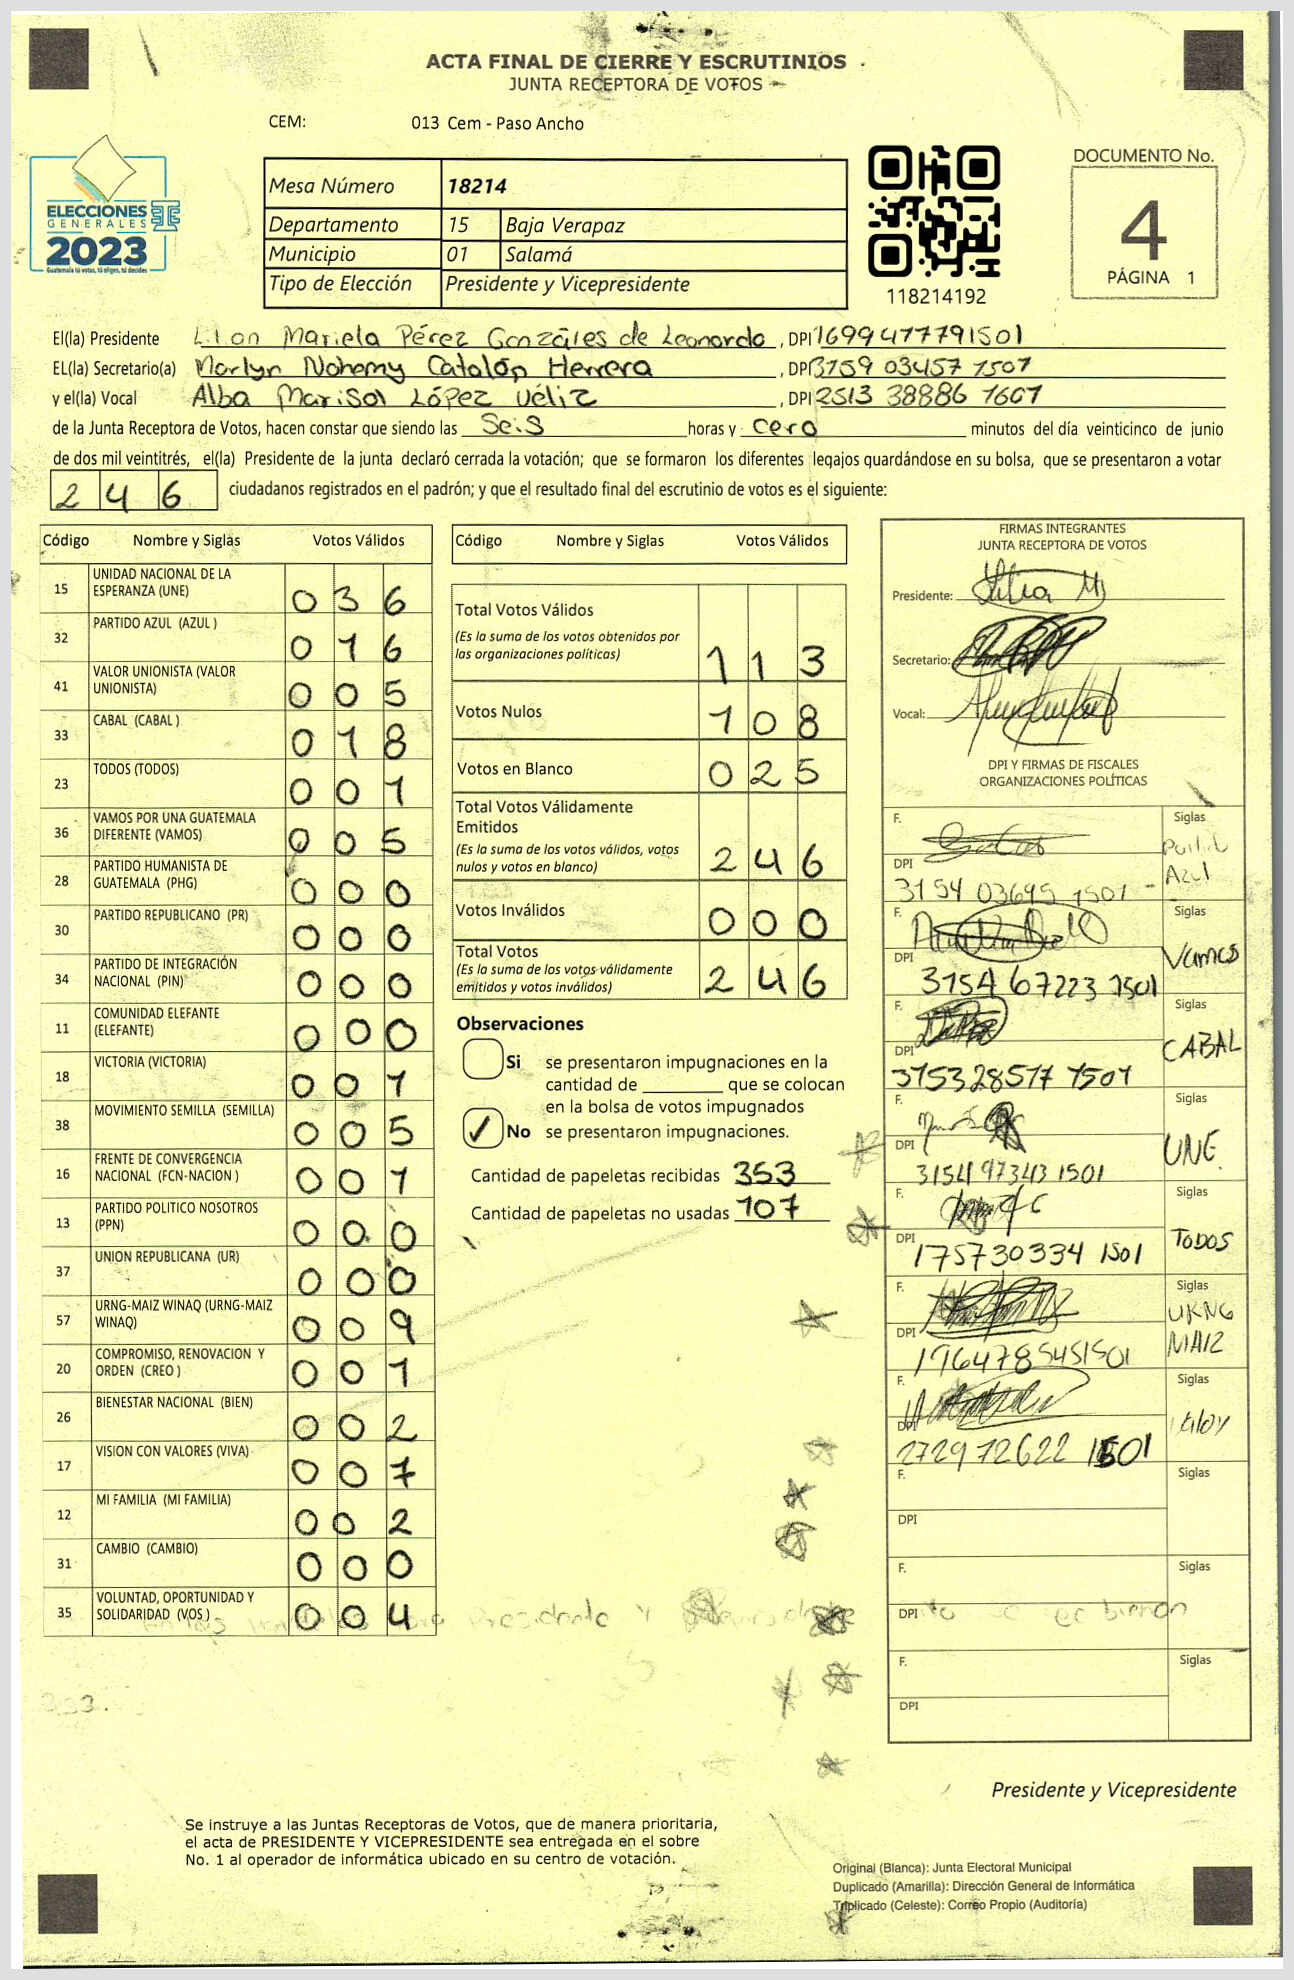 ACTA FINAL DE CIERRE Y ESCRUTINIOS
JUNTA RECEPTORA DE VOTOS
CEM: 013 Cem - Paso Ancho
ELECCIONES
GENERALES
2023
Guatemala tú votas, tú eliges, tú decides
Mesa Número 18214
Departamento 15 Baja Verapaz
Municipio 01 Salamá
Tipo de Elección Presidente y Vicepresidente
118214192
DOCUMENTO No.
4
PÁGINA 1
El(la) Presidente Lilian Mariela Pérez Gonzáles de Leonardo, DPI 1699477791501
EL(la) Secretario(a) Marlyn Nohemy Catalán Herrera, DPI 3159 03457 1501
y el(la) Vocal Alba Marisol López Véliz, DPI 2513 38886 1601
de la Junta Receptora de Votos, hacen constar que siendo las Seis horas y cero minutos del día veinticinco de junio
de dos mil veintitrés, el(la) Presidente de la junta declaró cerrada la votación; que se formaron los diferentes legajos guardándose en su bolsa, que se presentaron a votar
246 ciudadanos registrados en el padrón; y que el resultado final del escrutinio de votos es el siguiente:
Código Nombre y Siglas Votos Válidos
15 UNIDAD NACIONAL DE LA ESPERANZA (UNE) 036
32 PARTIDO AZUL (AZUL ) 016
41 VALOR UNIONISTA (VALOR UNIONISTA) 005
33 CABAL (CABAL ) 018
23 TODOS (TODOS) 001
36 VAMOS POR UNA GUATEMALA DIFERENTE (VAMOS) 005
28 PARTIDO HUMANISTA DE GUATEMALA (PHG) 000
30 PARTIDO REPUBLICANO (PR) 000
34 PARTIDO DE INTEGRACIÓN NACIONAL (PIN) 000
11 COMUNIDAD ELEFANTE (ELEFANTE) 000
18 VICTORIA (VICTORIA) 001
38 MOVIMIENTO SEMILLA (SEMILLA) 005
16 FRENTE DE CONVERGENCIA NACIONAL (FCN-NACION ) 001
13 PARTIDO POLITICO NOSOTROS (PPN) 000
37 UNION REPUBLICANA (UR) 000
57 URNG-MAIZ WINAQ (URNG-MAIZ WINAQ) 009
20 COMPROMISO, RENOVACION Y ORDEN (CREO ) 001
26 BIENESTAR NACIONAL (BIEN) 002
17 VISION CON VALORES (VIVA) 007
12 MI FAMILIA (MI FAMILIA) 002
31 CAMBIO (CAMBIO) 000
35 VOLUNTAD, OPORTUNIDAD Y SOLIDARIDAD (VOS ) 004
Código Nombre y Siglas Votos Válidos
Total Votos Válidos
(Es la suma de los votos obtenidos por
las organizaciones políticas) 113
Votos Nulos 108
Votos en Blanco 025
Total Votos Válidamente
Emitidos
(Es la suma de los votos válidos, votos
nulos y votos en blanco) 246
Votos Inválidos 000
Total Votos
(Es la suma de los votos válidamente
emitidos y votos inválidos) 246
Observaciones
Si se presentaron impugnaciones en la
cantidad de ________ que se colocan
en la bolsa de votos impugnados
✓ No se presentaron impugnaciones.
Cantidad de papeletas recibidas 353
Cantidad de papeletas no usadas 107
FIRMAS INTEGRANTES
JUNTA RECEPTORA DE VOTOS
Presidente:
Secretario:
Vocal:
DPI Y FIRMAS DE FISCALES
ORGANIZACIONES POLÍTICAS
F. Siglas
DPI 3154 03695 1501 Partido Azul
F. Siglas
DPI 3154 67223 1501 Vamos
F. Siglas
DPI 315328517 1501 CABAL
F. Siglas
DPI 3154 97343 1501 UNE
F. Siglas
DPI 175730334 1501 TODOS
F. Siglas
DPI 1964785451501 URNG MAIZ
F. Siglas
DPI 272972622 1501
F. Siglas
DPI
F. Siglas
DPI
F. Siglas
DPI
Presidente y Vicepresidente
Se instruye a las Juntas Receptoras de Votos, que de manera prioritaria,
el acta de PRESIDENTE Y VICEPRESIDENTE sea entregada en el sobre
No. 1 al operador de informática ubicado en su centro de votación.
Original (Blanca): Junta Electoral Municipal
Duplicado (Amarilla): Dirección General de Informática
Triplicado (Celeste): Correo Propio (Auditoría)